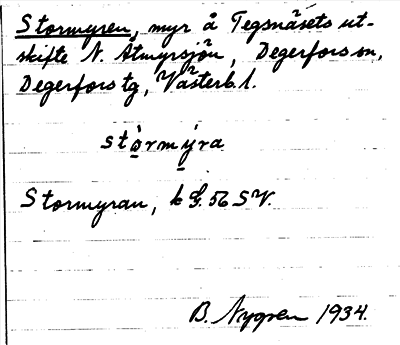 Stormyren, myr å Tegsnäsets ut-
skifte N. Åtmyrsjön, Degerfors sn,
Degerfors tg, Västerb. l.
stòrmýra
Stormyran, k G. 56 SV.
B. Nygren 1934.